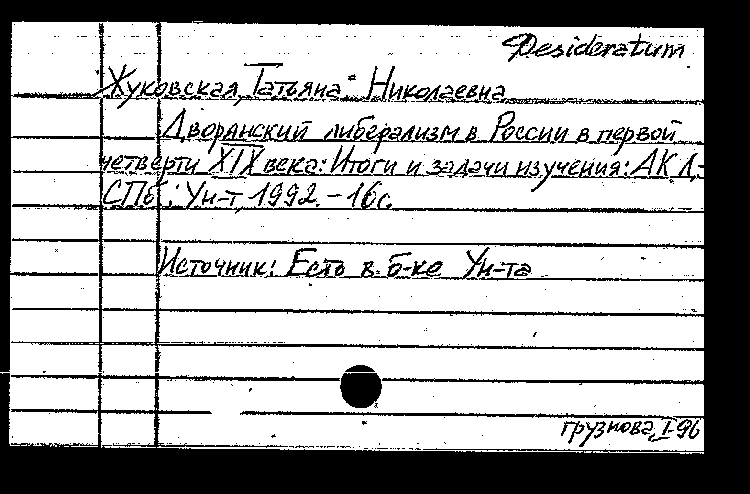 Desideratum
Жуковская, Татьяна Николаевна
Дворянский либерализм в России в первой
четверти XIX века: Итоги и задачи изучения: АКД.-
СПб.: Ун-т, 1992.-16с.
Источник: Есть в б-ке Ун-та
Грузнова, I-96